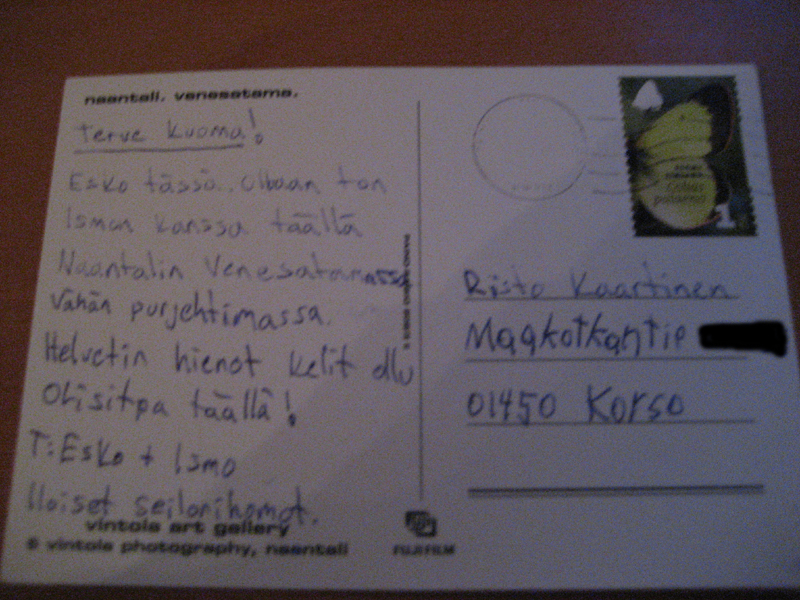 naantali. venesatama.
Terve Kuoma!
Esko tässä. Ollaan ton
Ismon kanssa täällä
Naantalin Venesatamassa
Vähän purjehtimassa.
Helvetin hienot kelit ollu
Olisitpa täällä!
T: Esko + Ismo
Iloiset seilorihomot.
vintola art gallery
© vintola photography, naantali
FUJIFILM
1
Risto Kaartinen
Maakotkantie
01450 Korso